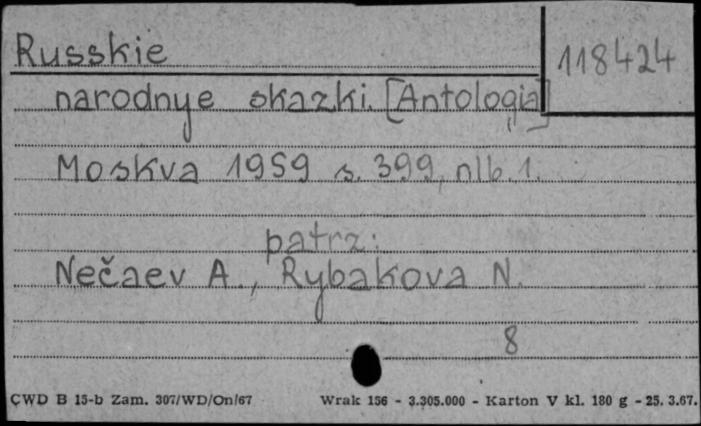 Russkie
118424
narodnye skazki. [Antologia]
Moskva 1959 s. 399, nlb. 1.
patrz:
Nečaev A., Rybakova N.
8
CWD B 15-b Zam. 307/WD/On/67 Wrak 156 - 3.305.000 - Karton V kl. 180 g - 25. 3.67.